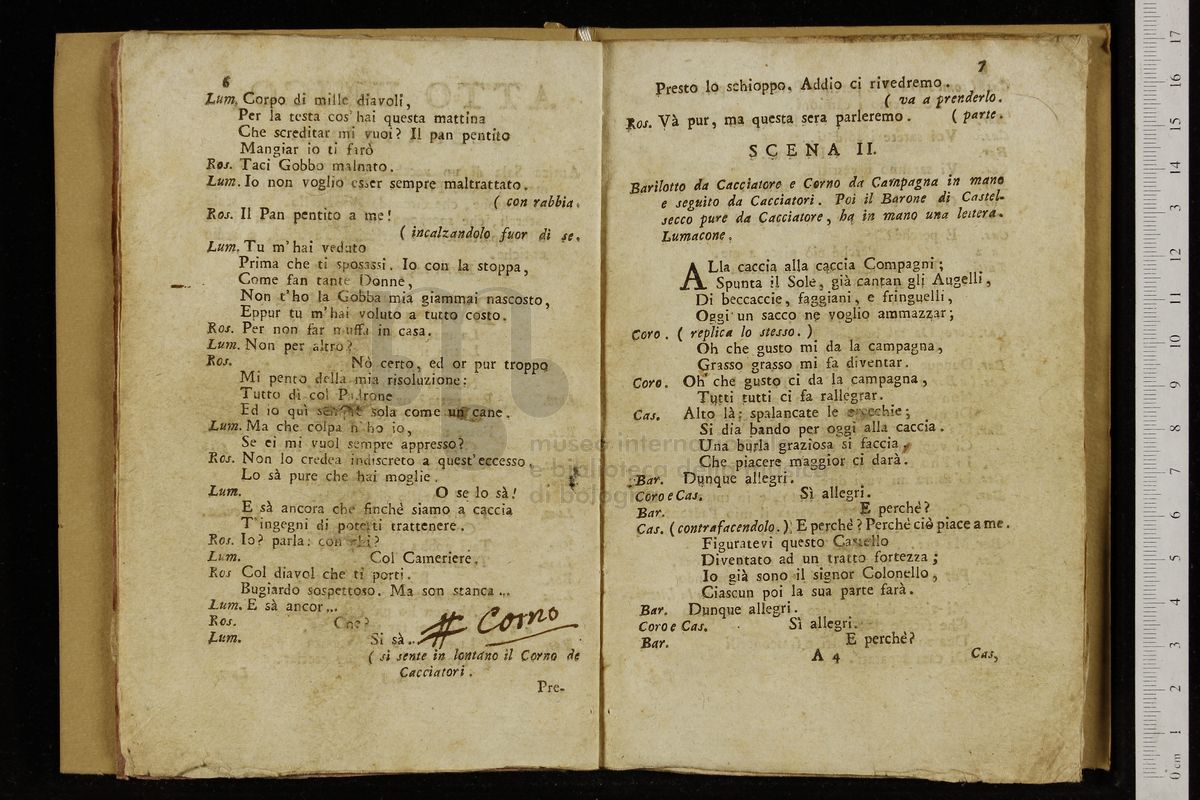 6
Lum. Corpo di mille diavoli,
Per la testa cos'hai questa mattina
Che screditar mi vuoi? Il pan pentito
Mangiar io ti farò
Ros. Taci Gobbo malnato.
Lum. Io non voglio esser sempre maltrattato.
( con rabbia.
Ros. Il Pan pentito a me!
( incalzandolo fuor di se.
Lum. Tu m'hai veduto
Prima che ti sposassi. Io con la stoppa,
Come fan tante Donne,
Non t'ho la Gobba mia giammai nascosto,
Eppur tu m'hai voluto a tutto costo.
Ros. Per non far muffa in casa.
Lum. Non per altro?
Ros. Nò certo, ed or pur troppo
Mi pento della mia risoluzione:
Tutto dì col Padrone
Ed io quì sempre sola come un cane.
Lum. Ma che colpa n'ho io,
Se ei mi vuol sempre appresso?
Ros. Non lo credea indiscreto a quest'eccesso,
Lo sà pure che hai moglie.
Lum. O se lo sà!
E sà ancora che finchè siamo a caccia
T'ingegni di poterti trattenere.
Ros. Io? parla: con chi?
Lum. Col Cameriere.
Ros Col diavol che ti porti.
Bugiardo sospettoso. Ma son stanca ...
Lum. E sà ancor...
Ros. Che?
Lum. Si sà.. # Corno
( si sente in lontano il Corno de
Cacciatori.
Pre-
7
Presto lo schioppo. Addio ci rivedremo.
( va a prenderlo.
Ros. Và pur, ma questa sera parleremo. ( parte.
SCENA II.
Barilotto da Cacciatore e Corno da Campagna in mano
e seguito da Cacciatori. Poi il Barone di Castel-
secco pure da Cacciatore, ha in mano una lettera.
Lumacone.
ALla caccia alla caccia Compagni;
Spunta il Sole, già cantan gli Augelli,
Di beccaccie, faggiani, e fringuelli,
Oggi un sacco ne voglio ammazzar;
Coro. ( replica lo stesso. )
Oh che gusto mi da la campagna,
Grasso grasso mi fa diventar.
Coro. Oh che gusto ci da la campagna,
Tutti tutti ci fa rallegrar.
Cas. Alto là: spalancate le orecchie;
Si dia bando per oggi alla caccia.
Una burla graziosa si faccia,
Che piacere maggior ci darà.
Bar. Dunque allegri.
Coro e Cas. Sì allegri.
Bar. E perchè?
Cas. (contrafacendolo.) E perchè? Perchè ciò piace a me.
Figuratevi questo Castello
Diventato ad un tratto fortezza;
Io già sono il signor Colonello,
Ciascun poi la sua parte farà.
Bar. Dunque allegri.
Coro e Cas. Sì allegri.
Bar. E perchè?
A 4 Cas,
museo internazionale
e biblioteca della musica
di bologna
0cm 1 2 3 4 5 6 7 8 9 10 11 12 13 14 15 16 17